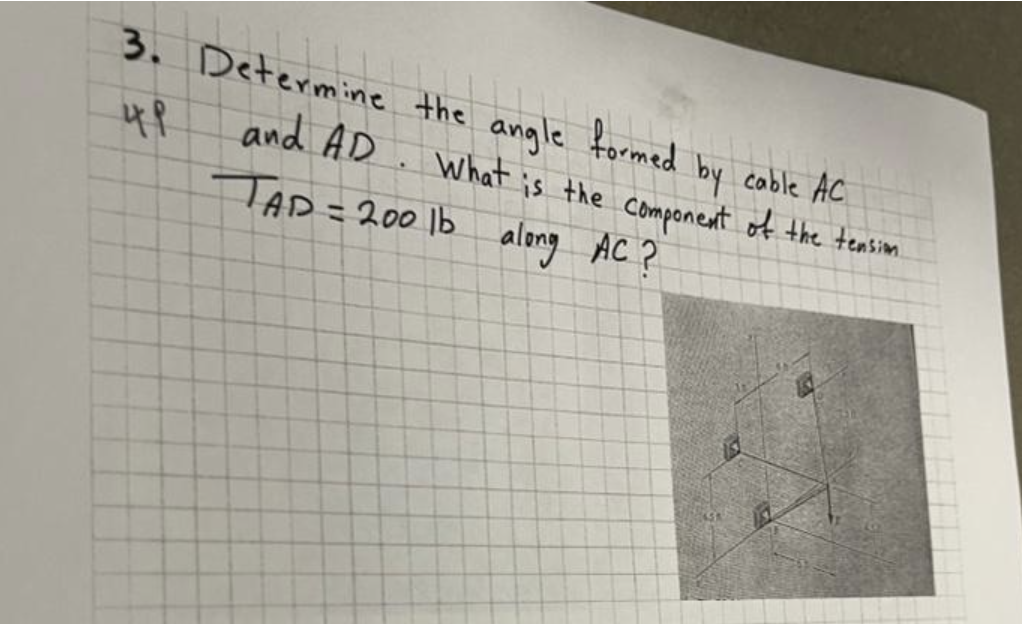 3. Determine the angle formed by cable AC
4P and AD. What is the component of the tension
TAD = 200 lb along AC?